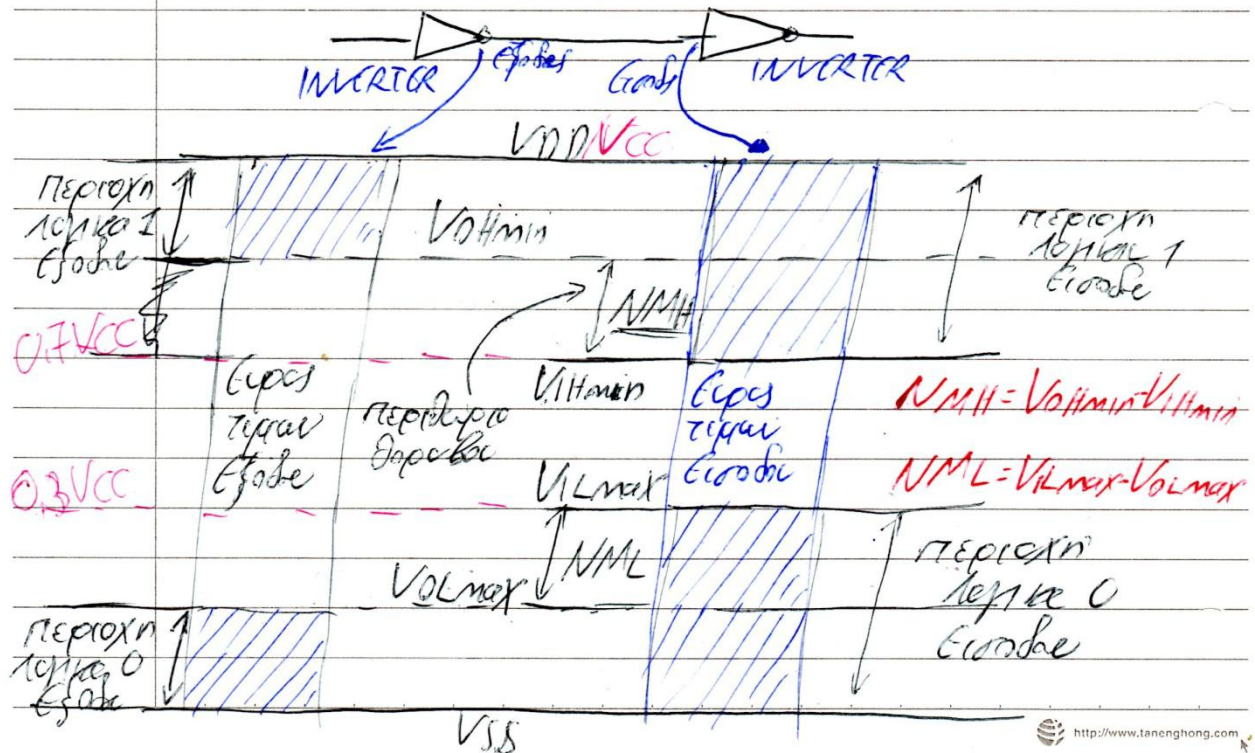 INVERTER
Εξοδος
Εισοδος
INVERTER
VDD/VCC
περιοχη
λογικο 1
Εξοδου
VOHmin
περιοχη
λογικο 1
Εισοδου
NMH
0.7VCC
VIHmin
Ευρος
τιμων
Εξοδου
περιθωριο
θορυβου
Ευρος
τιμων
Εισοδου
NMH = VOHmin - VIHmin
0.3VCC
VILmax
NML = VILmax - VOLmax
NML
VOLmax
περιοχη
λογικο 0
Εισοδου
περιοχη
λογικο 0
Εξοδου
VSS
http://www.tanenghong.com